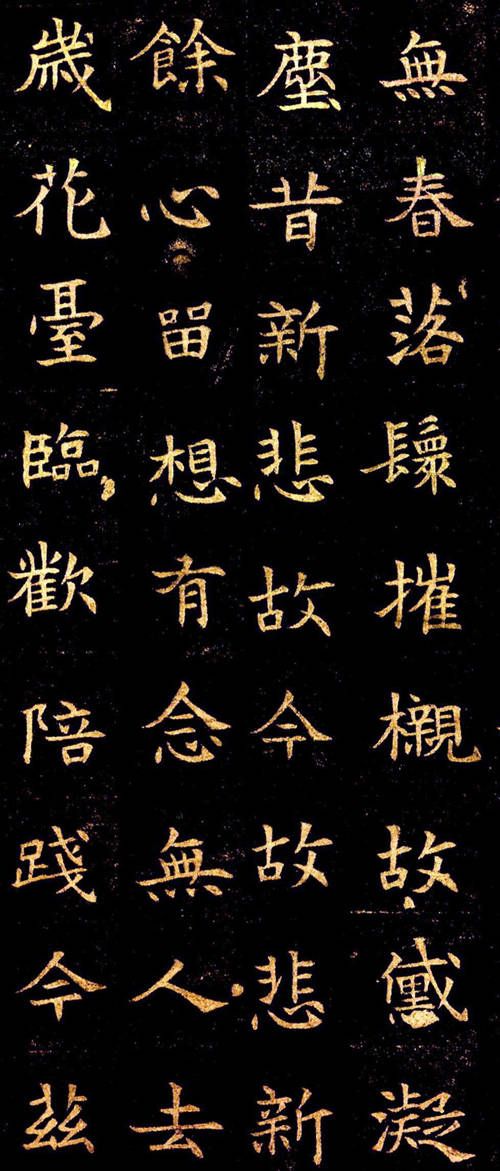 無春落鬟摧櫬故黛凝
塵昔新悲故今故悲新
餘心留想有念無人去
歲花臺臨歡陪踐今茲